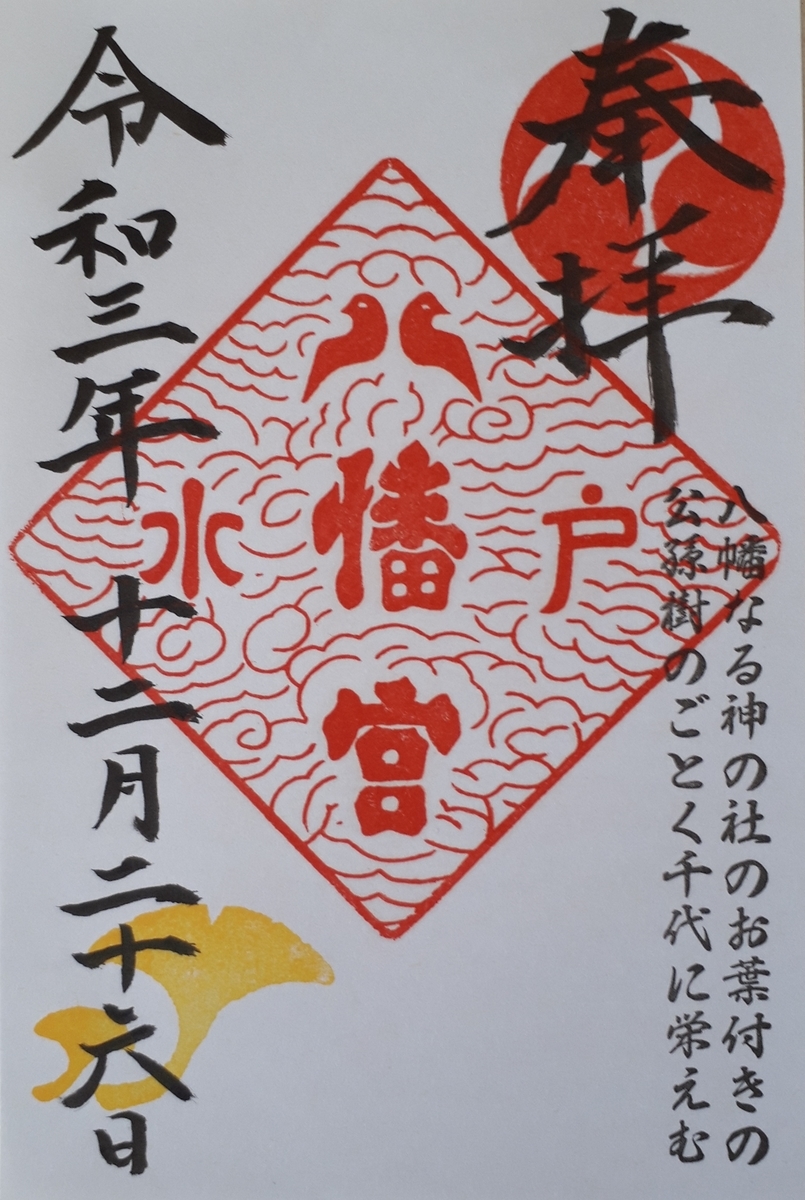 奉拝
八幡なる神の社のお葉付きの
公孫樹のごとく千代に栄えむ
水戸
八幡宮
令和三年十二月二十六日